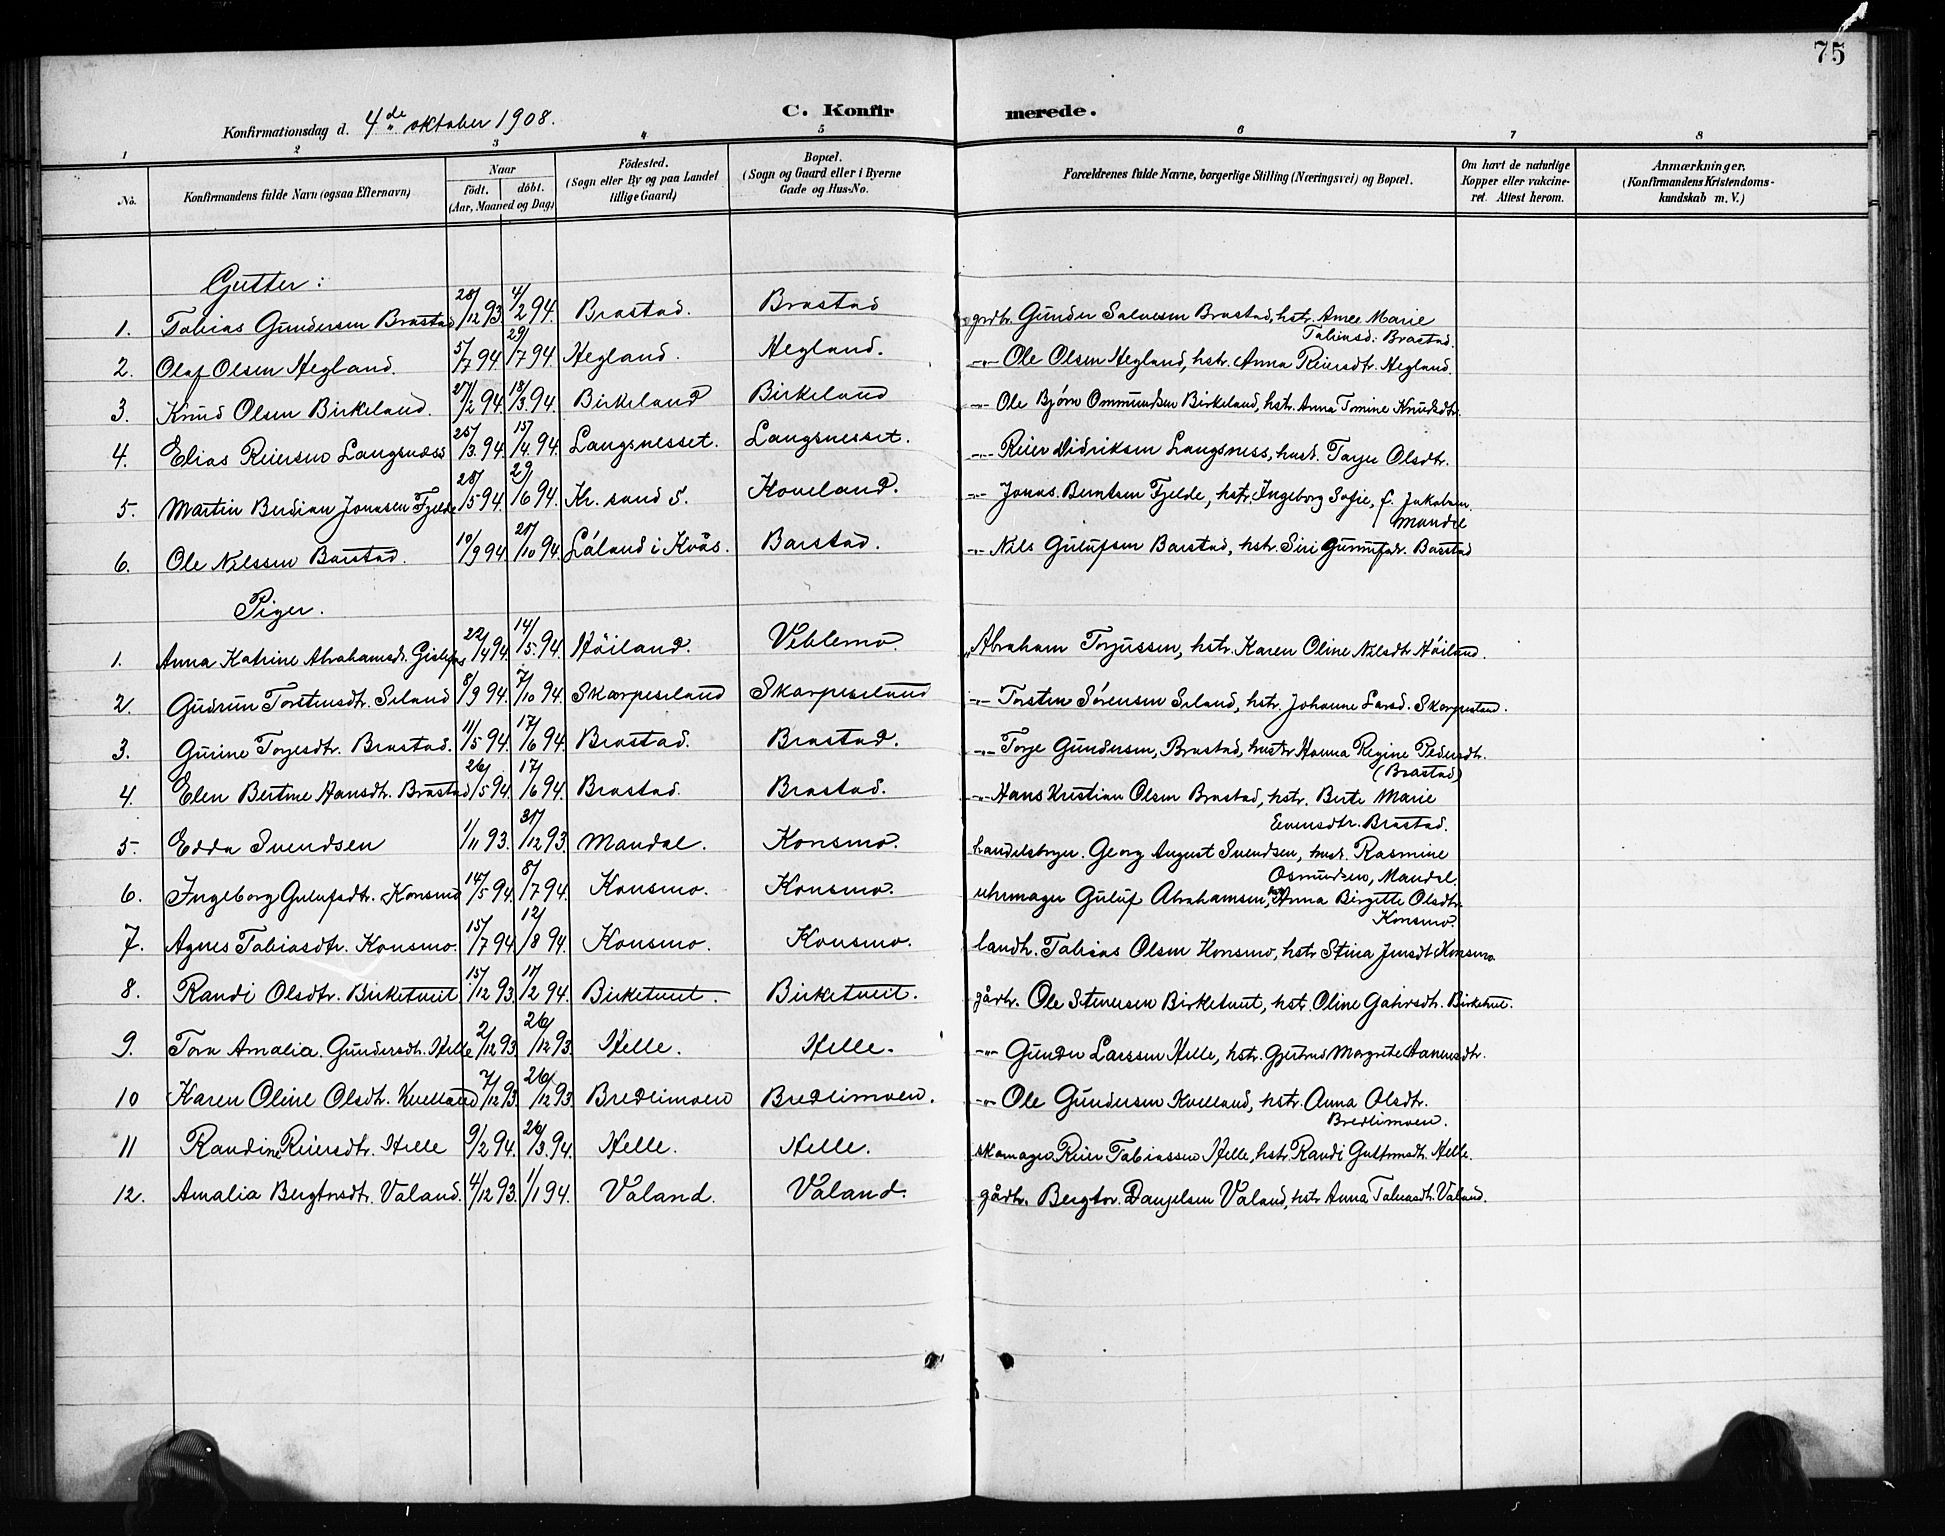 75
C. Konfirmerede.
Konfirmationsdag d. 4de oktober 1908.
1 2 3 4 5 6 7 8
No.
Konfirmandens fulde Navn (ogsaa Efternavn)
Naar
födt. döbt.
(Aar, Maaned og Dag)
Födested.
(Sogn eller By og paa Landet
tillige Gaard)
Bopæl.
(Sogn og Gaard eller i Byerne
Gade og Hus-No.
Forældrenes fulde Navne, borgerlige Stilling (Næringsvei) og Bopæl.
Om havt de naturlige
Kopper eller vakcine-
ret. Attest herom.
Anmærkninger,
(Konfirmandens Kristendoms-
kundskab m. V.)
Gutter:
1. Tobias Gundersen Brastad 28/12 93 4/2 94. Brastad. Brastad grdbr. Gunder Salvesen Brastad, hstr. Marie
Tobiasd. Brastad.
2. Olaf Olsen Hegland. 5/7 94 29/7 94. Hegland. Hegland. -"- Ole Olsen Hegland, hstr. Anna Reiersdtr. Hegland.
3. Knud Olsen Birkeland. 27/2 94. 18/3 94. Birkeland Birkeland -"- Ole Bjørn Ommundsen Birkeland, hstr. Anna Tomine Knudsdtr.
4. Elias Reiersen Langsnæss 25/3 94. 15/4 94. Langsnesset. Langsnesset. -"- Reier Didriksen Langsness, hust. Tarjer Olsdtr.
5. Martin Berdian Jonassen Fjelde 28/5 94. 29/6 94. Kr. sand S. Koveland. -"- Jonas Berntsen Fjelde, hstr. Ingeborg Sofie, f. Jakobsen.
Mandal
6. Ole Nilssen Barstad. 10/9 94. 21/10 94. Låland i Kvås. Barstad. -"- Nils Gulufsen Barstad, hstr. Siri Barstad
Piger.
1. Anna Katrine Abrahamsdtr. 22/4 94. 14/5 94. Høiland. Veblemo. Abraham Torjussen, hstr. Karen Oline Nilsdtr Høiland.
2. Gudrun Torstensdtr. Seland 8/9 94. 7/10 94. Skarpeseland Skarpeseland -"- Torsten Sørensen Seland, hstr. Johanne Larsd.
3. Gurine Torjesdtr. Brastad. 11/5 94. 17/6 94. Brastad. Brastad. -"- Torje Gundersen, Brastad, hustr Hanna Regine Pedersdtr.
(Brastad)
4. Elen Bertine Hansdtr. Brastad 26/5 94. 17/6 94. Brastad. Brastad. -"- Hans Kristian Olsen Brastad, hstr. Berte Marie
Evensdtr. Brastad.
5. Edda Svendsen 1/11 93. 31/12 93. Mandal. Konsmo. handelsbryer. Georg August Svendsen, hust. Rasmine
Osmundsen, Mandal.
6. Ingeborg Gulufsdtr. Konsmo 14/5 94. 8/7 94. Konsmo. Konsmo. uhrmager Guluf Abrahamsen, Anna Birgitte Olsdtr.
Konsmo.
7. Agnes Tobiasdtr. Konsmo. 15/7 94 12/8 94. Konsmo. Konsmo. landh. Tobias Olsen Konsmo, hstr Stina Jensdt Konsmo
8. Randi Olsdtr. Birketveit 15/12 93 11/2 94. Birketveit. Birketveit. gårbr. Ole Stenersen Birketveit, hst. Oline Birketveit.
9. Tora Amalia. Gundersdtr. Helle 2/12 93. 26/12 93. Helle. Helle. -"- Gunder Larssen Helle, hstr. Gjertrud Margrete Hanensdtr.
10 Karen Oline Olsdtr. Kvelland 7/12 93. 26/12 93. Bredlimoen Bredlimoen. -"- Ole Gundersen Kvelland, hstr. Anna Olsdtr.
Bredlimoen.
11 Randine Reiersdtr. Helle 9/2 94. 26/3 94. Helle. Helle. skomager Reier Tobiassen Helle, hstr. Randi Guttormsdtr. Helle.
12. Amalia Bergtorsdtr. Valand. 4/12 93. 1/1 94. Valand. Valand. gårbr. Bergtor. Danjelsen Valand, hstr Anna Tobiasdtr. Valand.